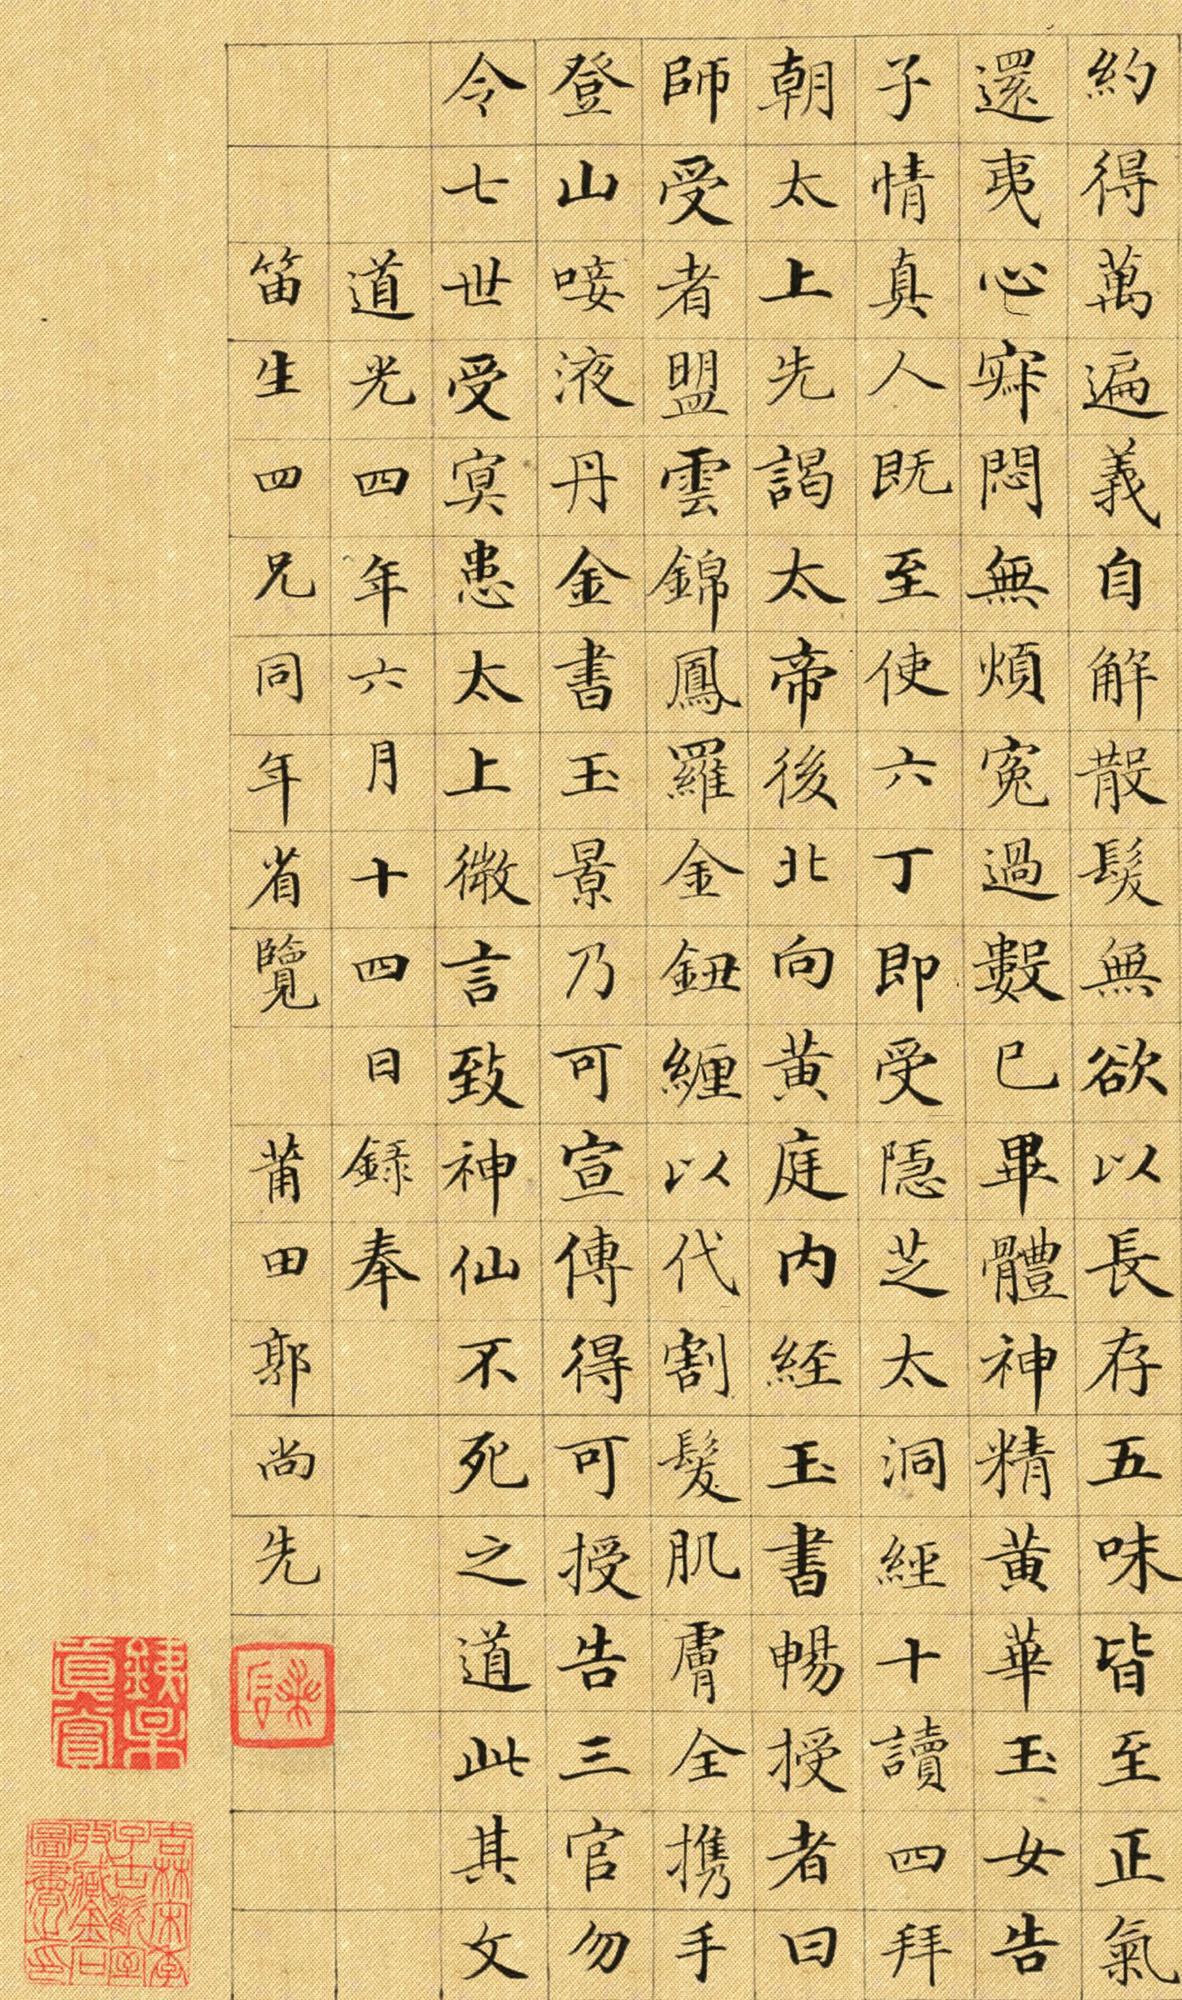 約得萬遍義自解散髮無欲以長存五味皆至正氣
還夷心寂悶無煩寃過數已畢體神精黃華玉女告
子情真人既至使六丁即受隱芝太洞經十讀四拜
朝太上先謁太帝後北向黃庭內經玉書暢授者曰
師受者盟雲錦鳳羅金鈕纏以代割髮肌膚全携手
登山唼液丹金書玉景乃可宣傳得可授告三官勿
令七世受冥患太上微言致神仙不死之道此其文
道光四年六月十四日錄奉
笛生四兄同年省覽 莆田郭尚先
鐵梁真賞
吉林宋季子古歡室收藏金石圖書之印